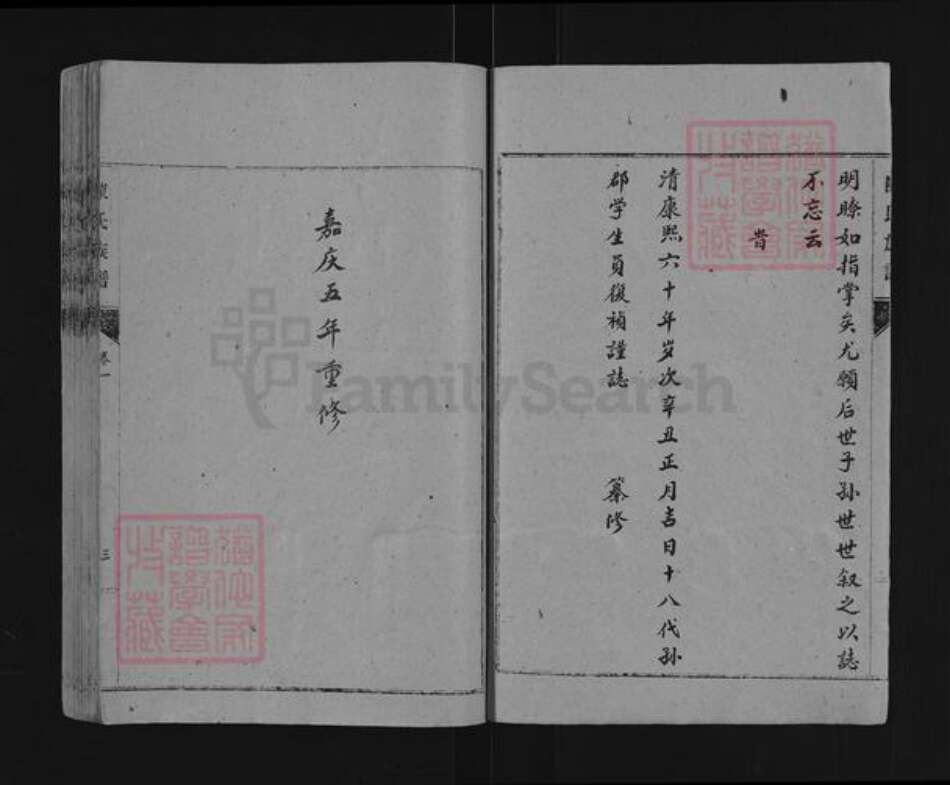 明瞭如指掌矣尤願后世子孙世世叙之以誌
不忘云
昔
清康熙六十年岁次辛丑正月吉日十八代孙
郡学生員復禎謹誌 纂修
嘉庆五年重修
氏族譜
卷一
三
FamilySearch